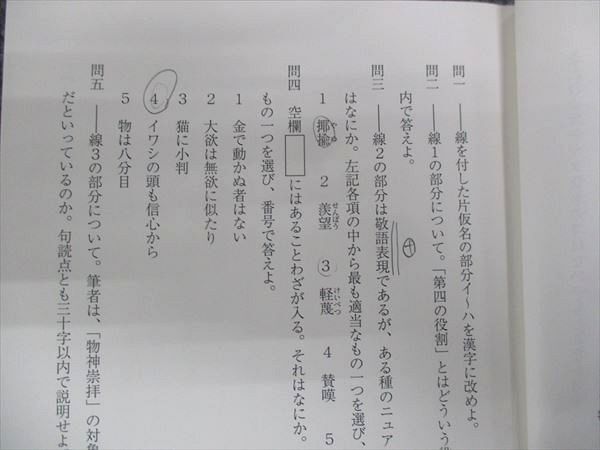 問一　――線を付した片仮名の部分イ～ハを漢字に改めよ。
問二　――線1の部分について。「第四の役割」とはどういう
内で答えよ。
問三　――線2の部分は敬語表現であるが、ある種のニュア
はなにか。左記各項の中から最も適当なもの一つを選び、
1　揶揄　2　羨望　3　軽蔑　4　賛嘆　5
やゆ　せんぼう　けいべつ
問四　空欄　にはあることわざが入る。それはなにか。
もの一つを選び、番号で答えよ。
1　金で動かぬ者はない
2　大欲は無欲に似たり
3　猫に小判
4　イワシの頭も信心から
5　物は八分目
問五　――線3の部分について。筆者は、「物神崇拝」の対象
だといっているのか。句読点とも三十字以内で説明せよ